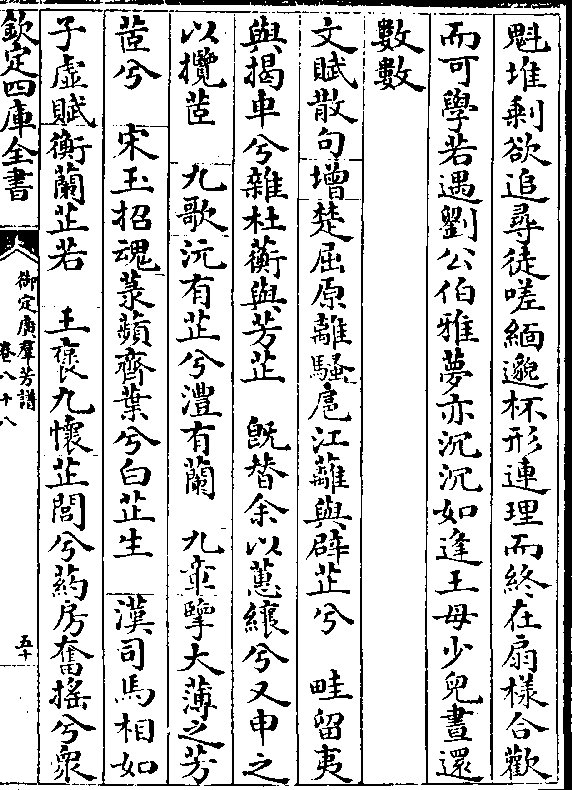 魁堆剩欲追尋徒嗟緬邈杯形連理而終在扇様合歡
而可學若遇劉公伯雅夢亦沉沉如逢王母少兒晝還
數數
文賦散句增楚屈原離騷扈江蘺與辟芷兮　畦留夷
與揭車兮雜杜蘅與芳芷　旣替余以蕙纕兮又申之
以攬茝　九歌沅有芷兮澧有蘭　九章擥大薄之芳
茝兮　宋玉招魂菉蘋齊葉兮白芷生　漢司馬相如
子虛賦衡蘭芷若　王襃九懷芷閭兮葯房奮搖兮衆
欽定四庫全書
御定廣羣芳譜
卷八十八
五十